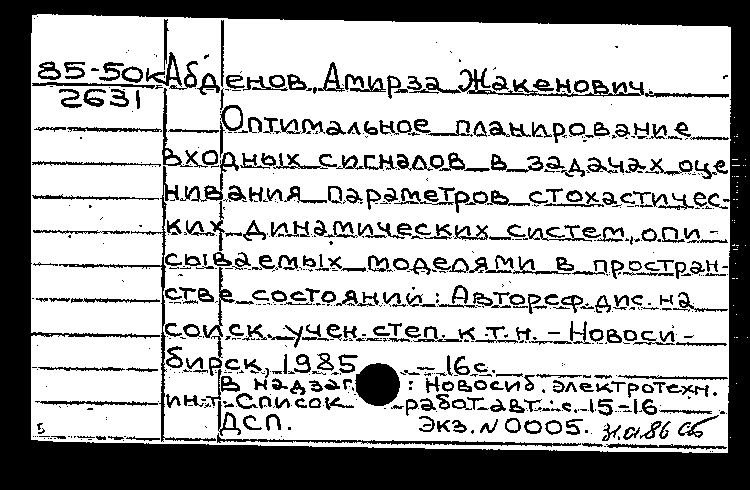 85-50к Абденов, Амирза Жакенович.
2631
Оптимальное планирование
входных сигналов в задачах оце
нивания параметров стохастичес-
ких динамических систем, опи-
сываемых моделями в простран-
стве состояний: Автореф. дис. на
соиск. учен. степ. к.т.н. - Новоси-
бирск, 1985. - 16с.
В надзаг.: Новосиб. электротехн.
ин-т. Список работ авт.: с. 15-16
ДСП. Экз. N 0005. 31.01.86
5